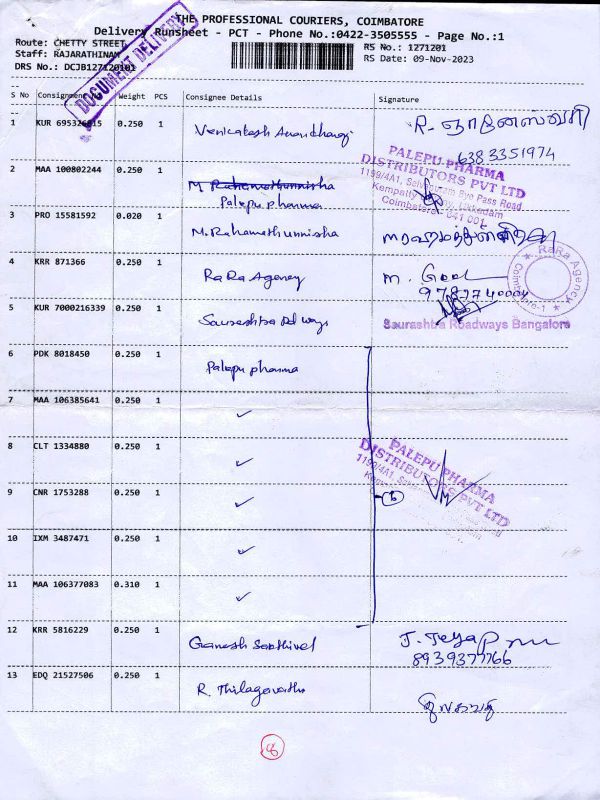 THE PROFESSIONAL COURIERS, COIMBATORE
Delivery Runsheet - PCT - Phone No.:0422-3505555 - Page No.:1
Route: CHETTY STREET
Staff: RAJARATHINAM
DRS No.: DCJB127120101
RS No.: 1271201
RS Date: 09-Nov-2023
DOCUMENT DELIVERY
S No Consignment No Weight PCS Consignee Details Signature
1 KUR 0.250 1 Venkatesh R. ஞானஸ்வரி
6383351974
2 MAA 100802244 0.250 1 M Rahamathunnisha
Palepu pharma
PALEPU PHARMA
DISTRIBUTORS PVT LTD
1199/4A1, Bye Pass Road
Coimbatore - 641 001
3 PRO 15581592 0.020 1 M. Rahamathunnisha
4 KRR 871366 0.250 1 RaRa Agency M. Gopal
RaRa Agency
Coimbatore-1
5 KUR 7000216339 0.250 1 Saurashtra Rd ways
Saurashtra Roadways Bangalore
6 PDK 8018450 0.250 1 Palepu pharma
7 MAA 106385641 0.250 1 ✓
8 CLT 1334880 0.250 1 ✓
PALEPU PHARMA
DISTRIBUTORS PVT LTD
9 CNR 1753288 0.250 1 ✓ 6
10 IXM 3487471 0.250 1 ✓
11 MAA 106377083 0.310 1 ✓
12 KRR 5816229 0.250 1 Ganesh Sakthivel
8939377766
13 EDQ 21527506 0.250 1 R. Thilagavathi திலகவதி
8